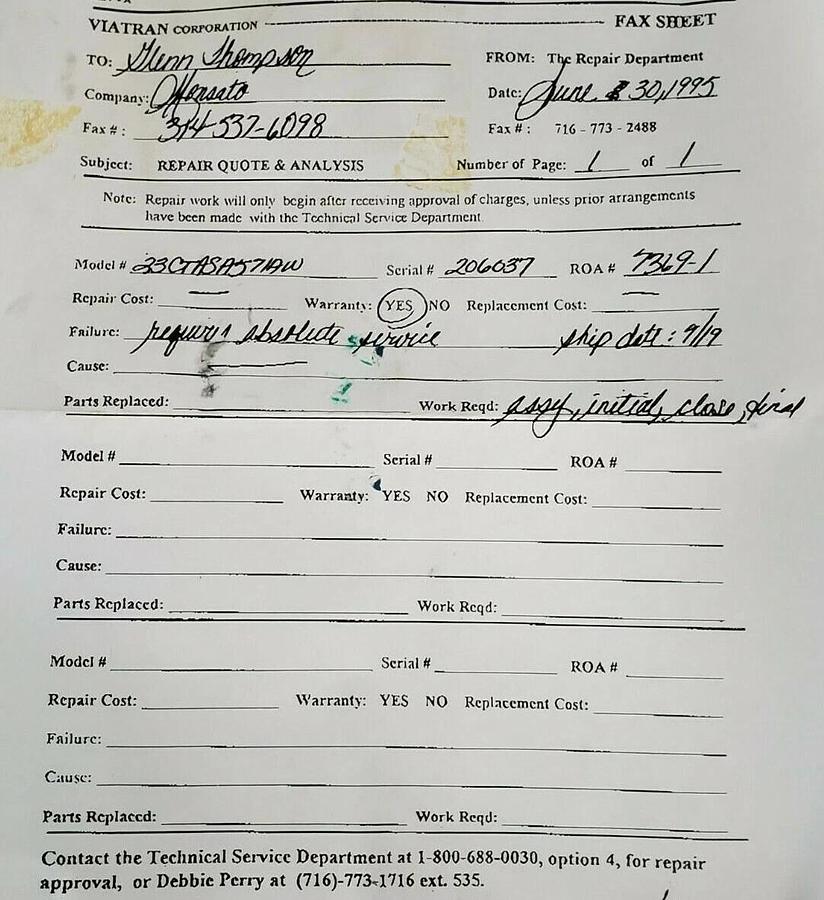 VIATRAN CORPORATION FAX SHEET
TO: Glenn Thompson FROM: The Repair Department
Company: Monsato Date: June 30, 1995
Fax #: 314-537-6098 Fax #: 716-773-2488
Subject: REPAIR QUOTE & ANALYSIS Number of Page: 1 of 1
Note: Repair work will only begin after receiving approval of charges, unless prior arrangements
have been made with the Technical Service Department
Model # Serial # 206037 ROA # 7369-1
Repair Cost: — Warranty: YES NO Replacement Cost: —
Failure: requires absolute service ship date: 9/19
Cause: —
Parts Replaced: Work Reqd: assy, initial, close, final
Model # Serial # ROA #
Repair Cost: Warranty: YES NO Replacement Cost:
Failure:
Cause:
Parts Replaced: Work Reqd:
Model # Serial # ROA #
Repair Cost: Warranty: YES NO Replacement Cost:
Failure:
Cause:
Parts Replaced: Work Reqd:
Contact the Technical Service Department at 1-800-688-0030, option 4, for repair
approval, or Debbie Perry at (716)-773-1716 ext. 535.